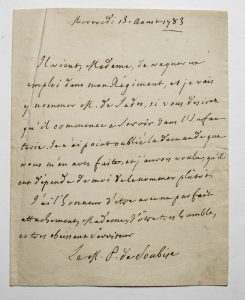 Mercredi 13. Aoust 1783
Il vient, Madame, de vaquer un
emploi dans mon Régiment, et je vais
y nommer M. de Sades, si vous desirez
qu'il commence a servir dans l'Infan
terie. Je n'ai point oublié la demande que
vous m'en avez faite, et j'aurois voulu, qu'il
eut dépendu de moi de le nommer plutôt.
J'ai l'honneur d'être avec un parfait
attachement, Madame, Votre très humble,
et très obeissant serviteur
Le M. P. de Soubise